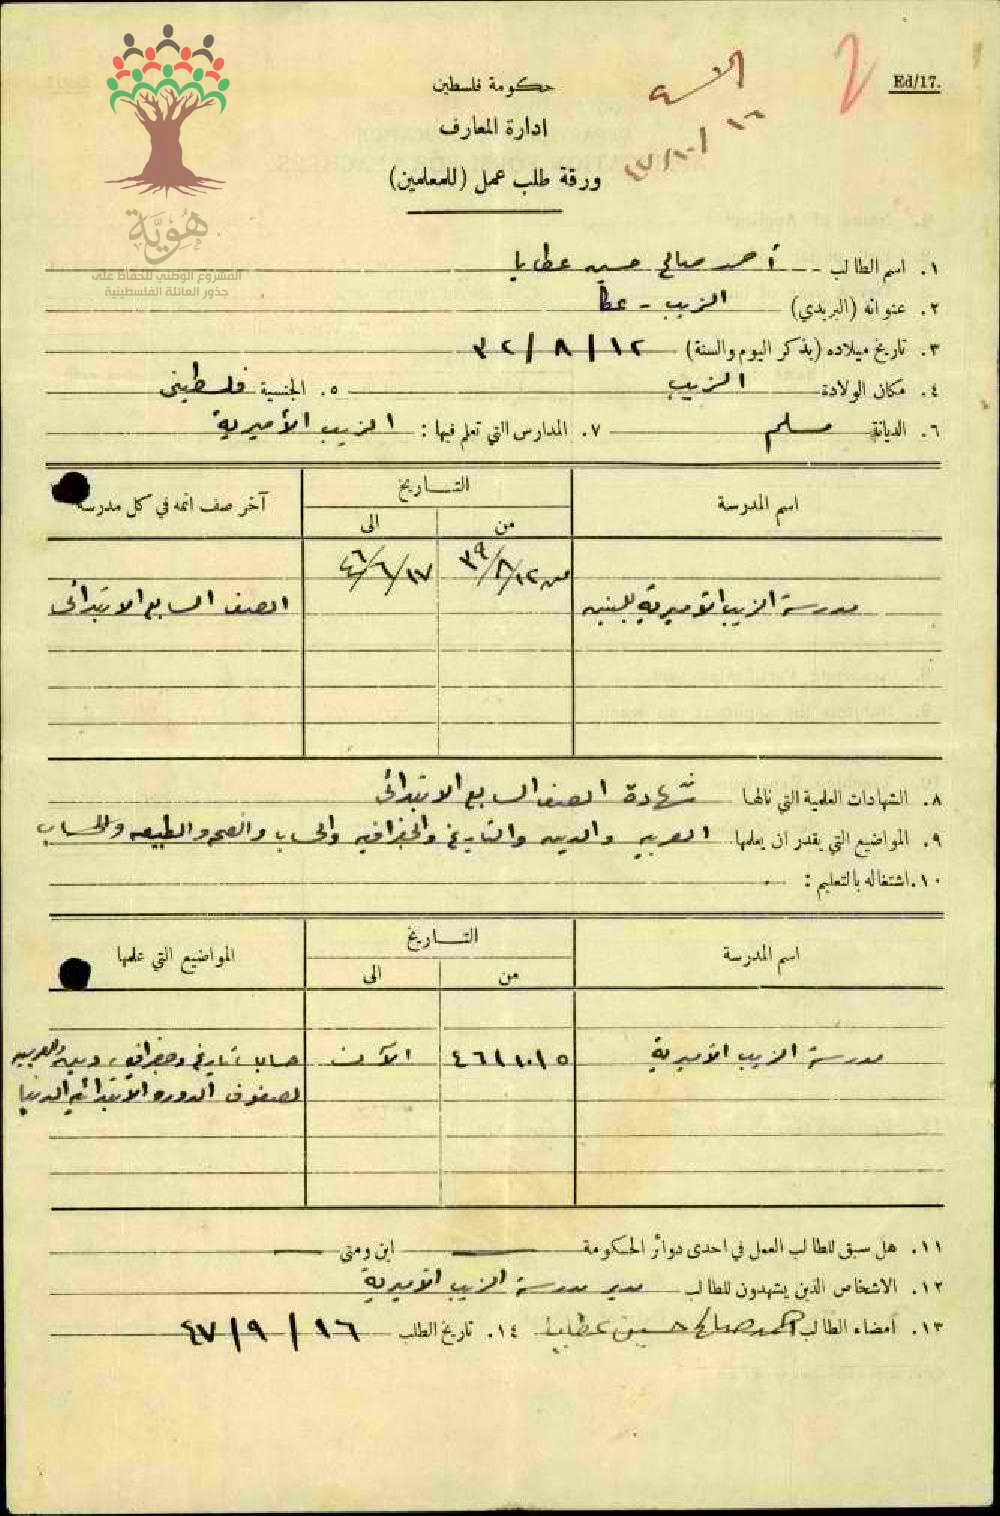 Ed/17.
حكومة فلسطين
ادارة المعارف
ورقة طلب عمل (للمعلمين)
١٦/١٠/٤٧
هُوِيَّة
المشروع الوطني للحفاظ على
جذور العائلة الفلسطينية
١. اسم الطالب أحمد صالح حسين عطايا
٢. عنوانه (البريدي) الزيب - عكا
٣. تاريخ ميلاده (يذكر اليوم والسنة) ١٢/٨/٣٢
٤. مكان الولادة الزيب ٥. الجنسية فلسطيني
٦. الديانة مسلم ٧. المدارس التي تعلم فيها: الزيب الأميرية
اسم المدرسة التــاريخ آخر صف اتمه في كل مدرسة
من الى
من ١٢/٨/٣٩ ١٧/٦/٤٦
مدرسة الزيب الأميرية للبنين الصف السابع الابتدائي
٨. الشهادات العلمية التي نالها شهادة الصف السابع الابتدائي
٩. المواضيع التي يقدر ان يعلمها العربيه والدين والتاريخ والجغرافيه والحساب والصحه والطبيعه
١٠. اشتغاله بالتعليم:
اسم المدرسة التــاريخ المواضيع التي علمها
من الى
مدرسة الزيب الأميرية ٤٦/١٠/٥ الآن حساب، تاريخ وجغرافيه، دين والعربيه
لصفوف الدوره الابتدائيه الدنيا
١١. هل سبق للطالب العمل في احدى دوائر الحكومة — اين ومتى —
١٢. الاشخاص الذين يشهدون للطالب مدير مدرسة الزيب الأميرية
١٣. امضاء الطالب احمد صالح حسين عطايا ١٤. تاريخ الطلب ١٦/٩/٤٧